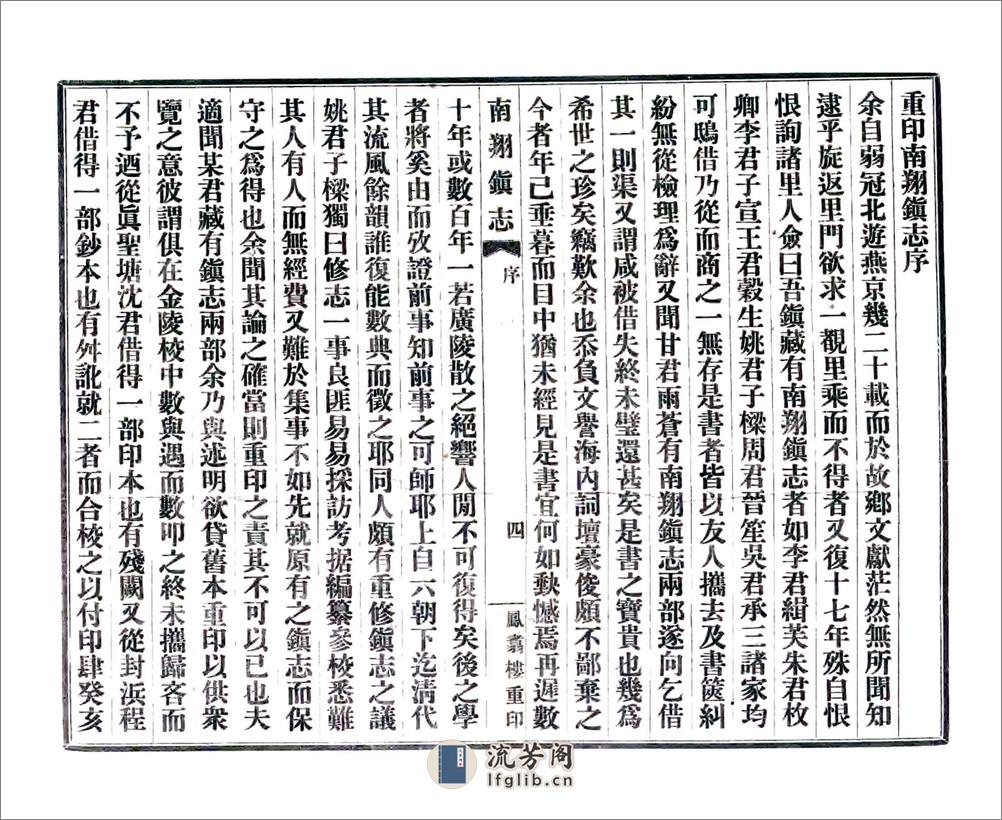 重印南翔鎭志序
余自弱冠北遊燕京幾二十載而於故鄉文獻茫然無所聞知
逮乎旋返里門欲求一觀里乘而不得者又復十七年殊自恨
恨詢諸里人僉曰吾鎭藏有南翔鎭志者如李君緝芙朱君枚
卿李君子宣王君穀生姚君子樑周君晉笙吳君承三諸家均
可鴟借乃從而商之一無存是書者皆以友人攜去及書篋糾
紛無從檢理爲辭又聞甘君雨蒼有南翔鎭志兩部遂向乞借
其一則渠又謂咸被借失終未璧還甚矣是書之寶貴也幾爲
希世之珍矣竊歎余也忝負文譽海內詞壇豪俊頗不鄙棄之
今者年已垂暮而目中猶未經見是書宜何如歉憾焉再遲數
南翔鎭志 序 四 鳳翥樓重印
十年或數百年一若廣陵散之絕響人閒不可復得矣後之學
者將奚由而攷證前事知前事之可師耶上自六朝下迄淸代
其流風餘韻誰復能數典而徵之耶同人頗有重修鎭志之議
姚君子樑獨曰修志一事良匪易易採訪考据編纂參校悉難
其人有人而無經費又難於集事不如先就原有之鎭志而保
守之爲得也余聞其論之確當則重印之責其不可以已也夫
適聞某君藏有鎭志兩部余乃與述明欲貸舊本重印以供衆
覽之意彼謂俱在金陵校中數與遇而數叩之終未攜歸客而
不予迺從眞聖塘沈君借得一部印本也有殘闕又從封浜程
君借得一部鈔本也有舛訛就二者而合校之以付印肆癸亥
流芳阁
lfglib.cn